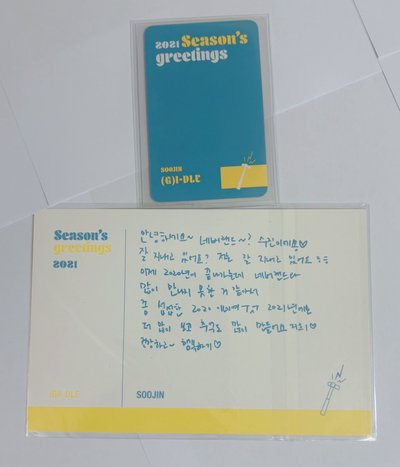 2021 Season's
greetings
SOOJIN
(G)I-DLE
Season's
greetings
2021
안녕하세요~ 네버랜드~? 수진이에요♡
잘 지내고 있어요? 저는 잘 지내고 있어요
이제 2020년이 끝나가는데 네버랜드다
많이 만나지 못한 것 같아서
좀 섭섭한 2020 이에여 TㅅT 2021년에는
더 많이 보고 추억도 많이 만들어요 저희!♡
건강하고~ 행복하기♡
(G)I-DLE
SOOJIN